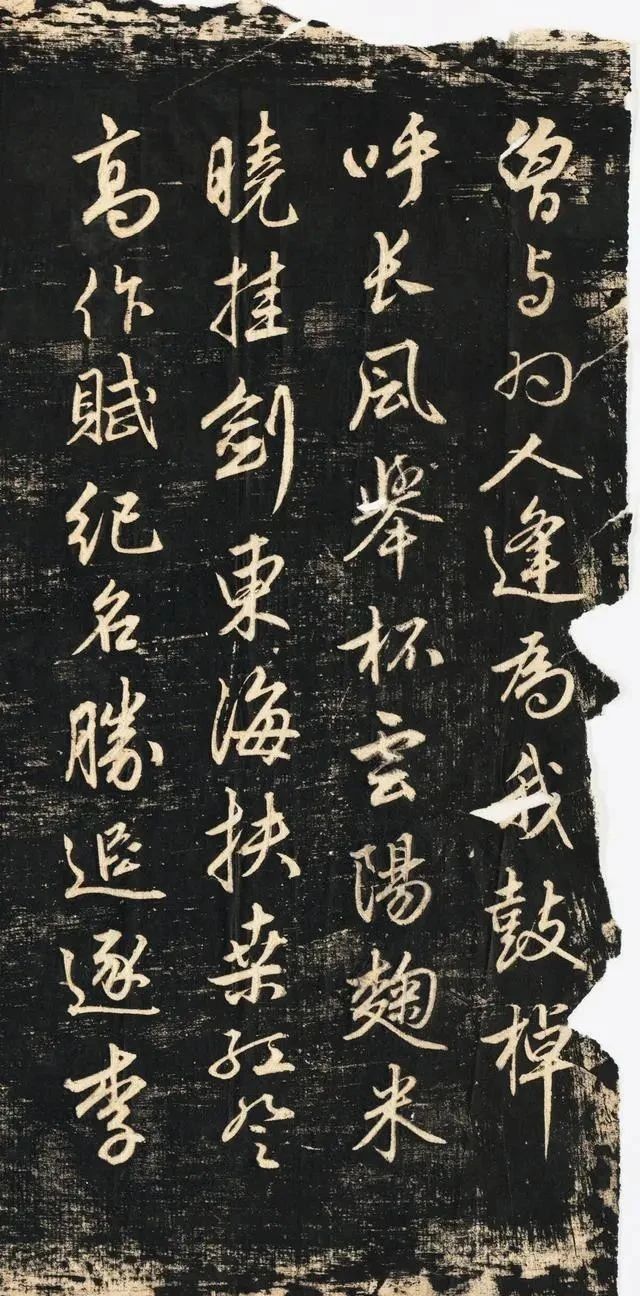 曾与幼人逢爲我鼓棹
呼长風舉杯雲陽麴米
曉挂劍東海扶桑紅登
高作賦紀名勝追逐李